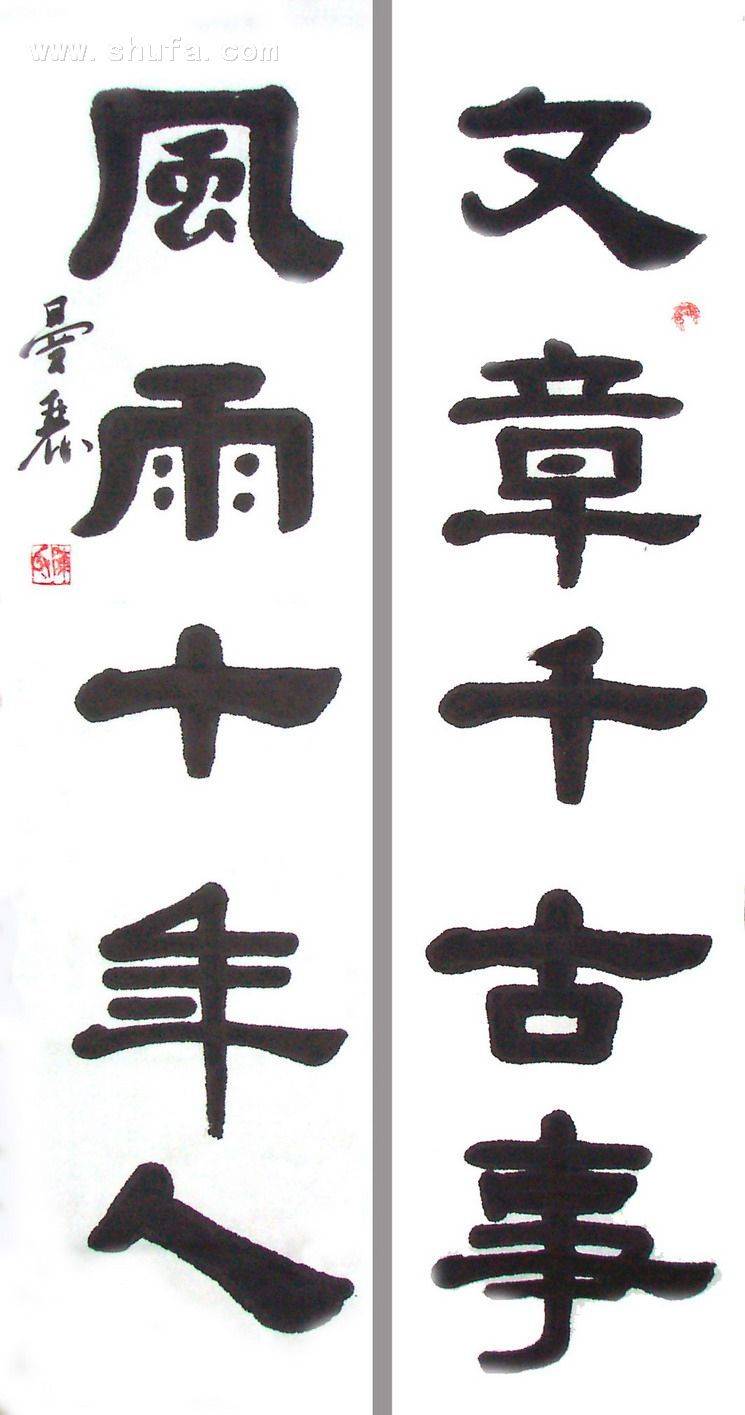 文章千古事
風雨十年人
曼麗
www.shufa.com